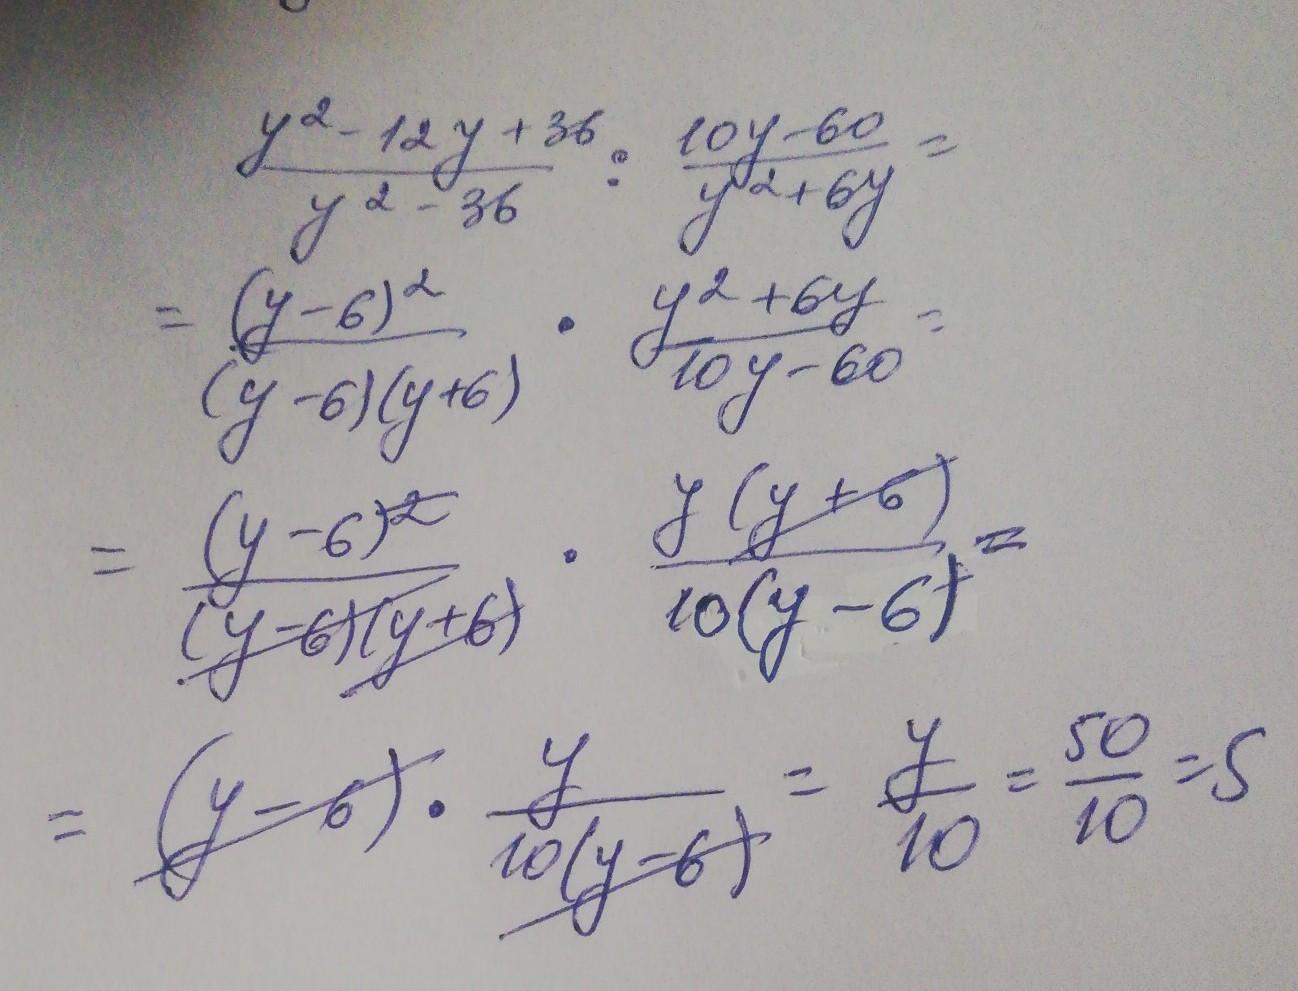 (y² - 12y + 36)/(y² - 36) : (10y - 60)/(y² + 6y) =
= (y - 6)²/((y - 6)(y + 6)) · (y² + 6y)/(10y - 60) =
= (y - 6)²/((y - 6)(y + 6)) · y(y + 6)/(10(y - 6)) =
= (y - 6) · y/(10(y - 6)) = y/10 = 50/10 = 5